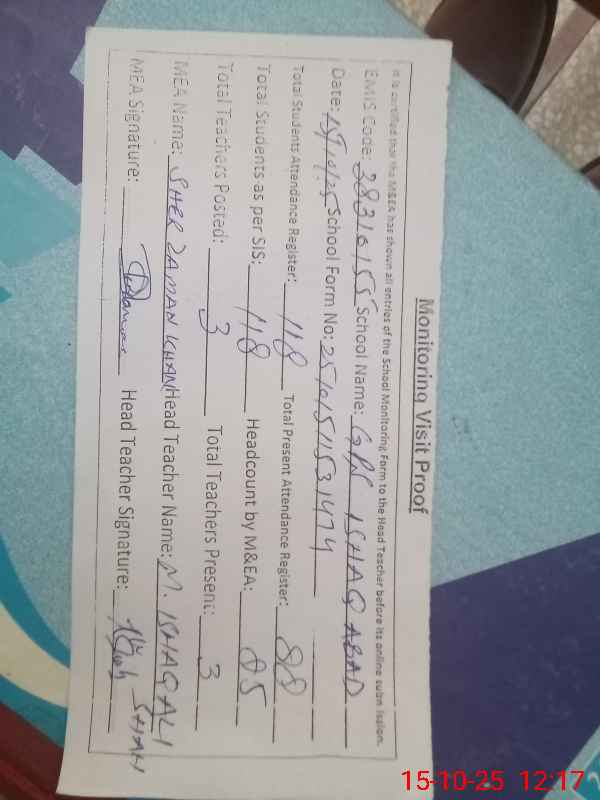 Monitoring Visit Proof
It is certified that the M&EA has shown all entries of the School Monitoring Form to the Head Teacher before its online submission.
EMIS Code: 28310155 School Name: GPS ISHAQ ABAD
Date: 15/10/25 School Form No: 25101511531474
Total Students Attendance Register: 118 Total Present Attendance Register: 88
Total Students as per SIS: 118 Headcount by M&EA: 85
Total Teachers Posted: 3 Total Teachers Present: 3
MEA Name: SHER ZAMAN KHAN Head Teacher Name: M. ISHAQ ALI SHAH
MEA Signature: Head Teacher Signature:
15-10-25 12:17